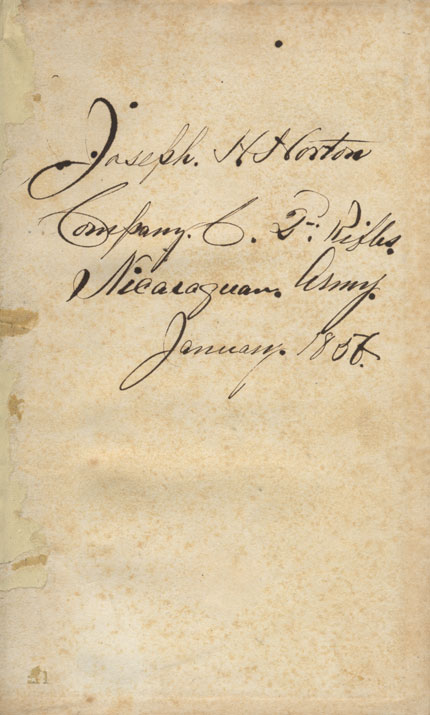 Joseph. H Horton
Company. C. 2d. Rifles.
Nicaraguan. Army.
January. 1856.